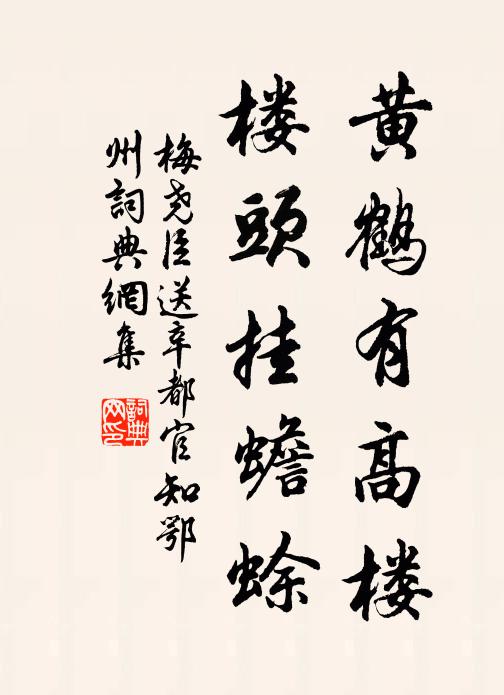 黄鹤有高楼
楼頭挂蟾蜍
梅尧臣送辛都官知鄂
州詞典網集
詞典
网印